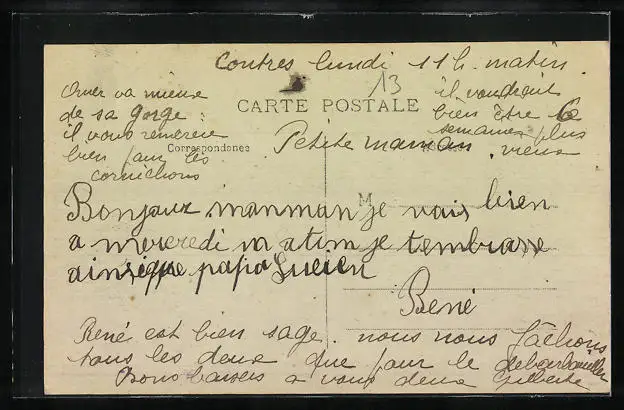 Contres lundi 11 h. matin
13
Omer va mieux
de sa gorge :
il vous remercie
bien pour les
cornichons
CARTE POSTALE
Correspondance
il voudrait
bien être 6
semaines plus
vieux
Petite maman
M
Bonjour manman je vais bien
a mercredi matin je tembrasse
ainsique papa Lucien
René
René est bien sage. nous nous fâchons
tous les deux que pour le débarbouiller
Bons baisers a vous deux Gilberte